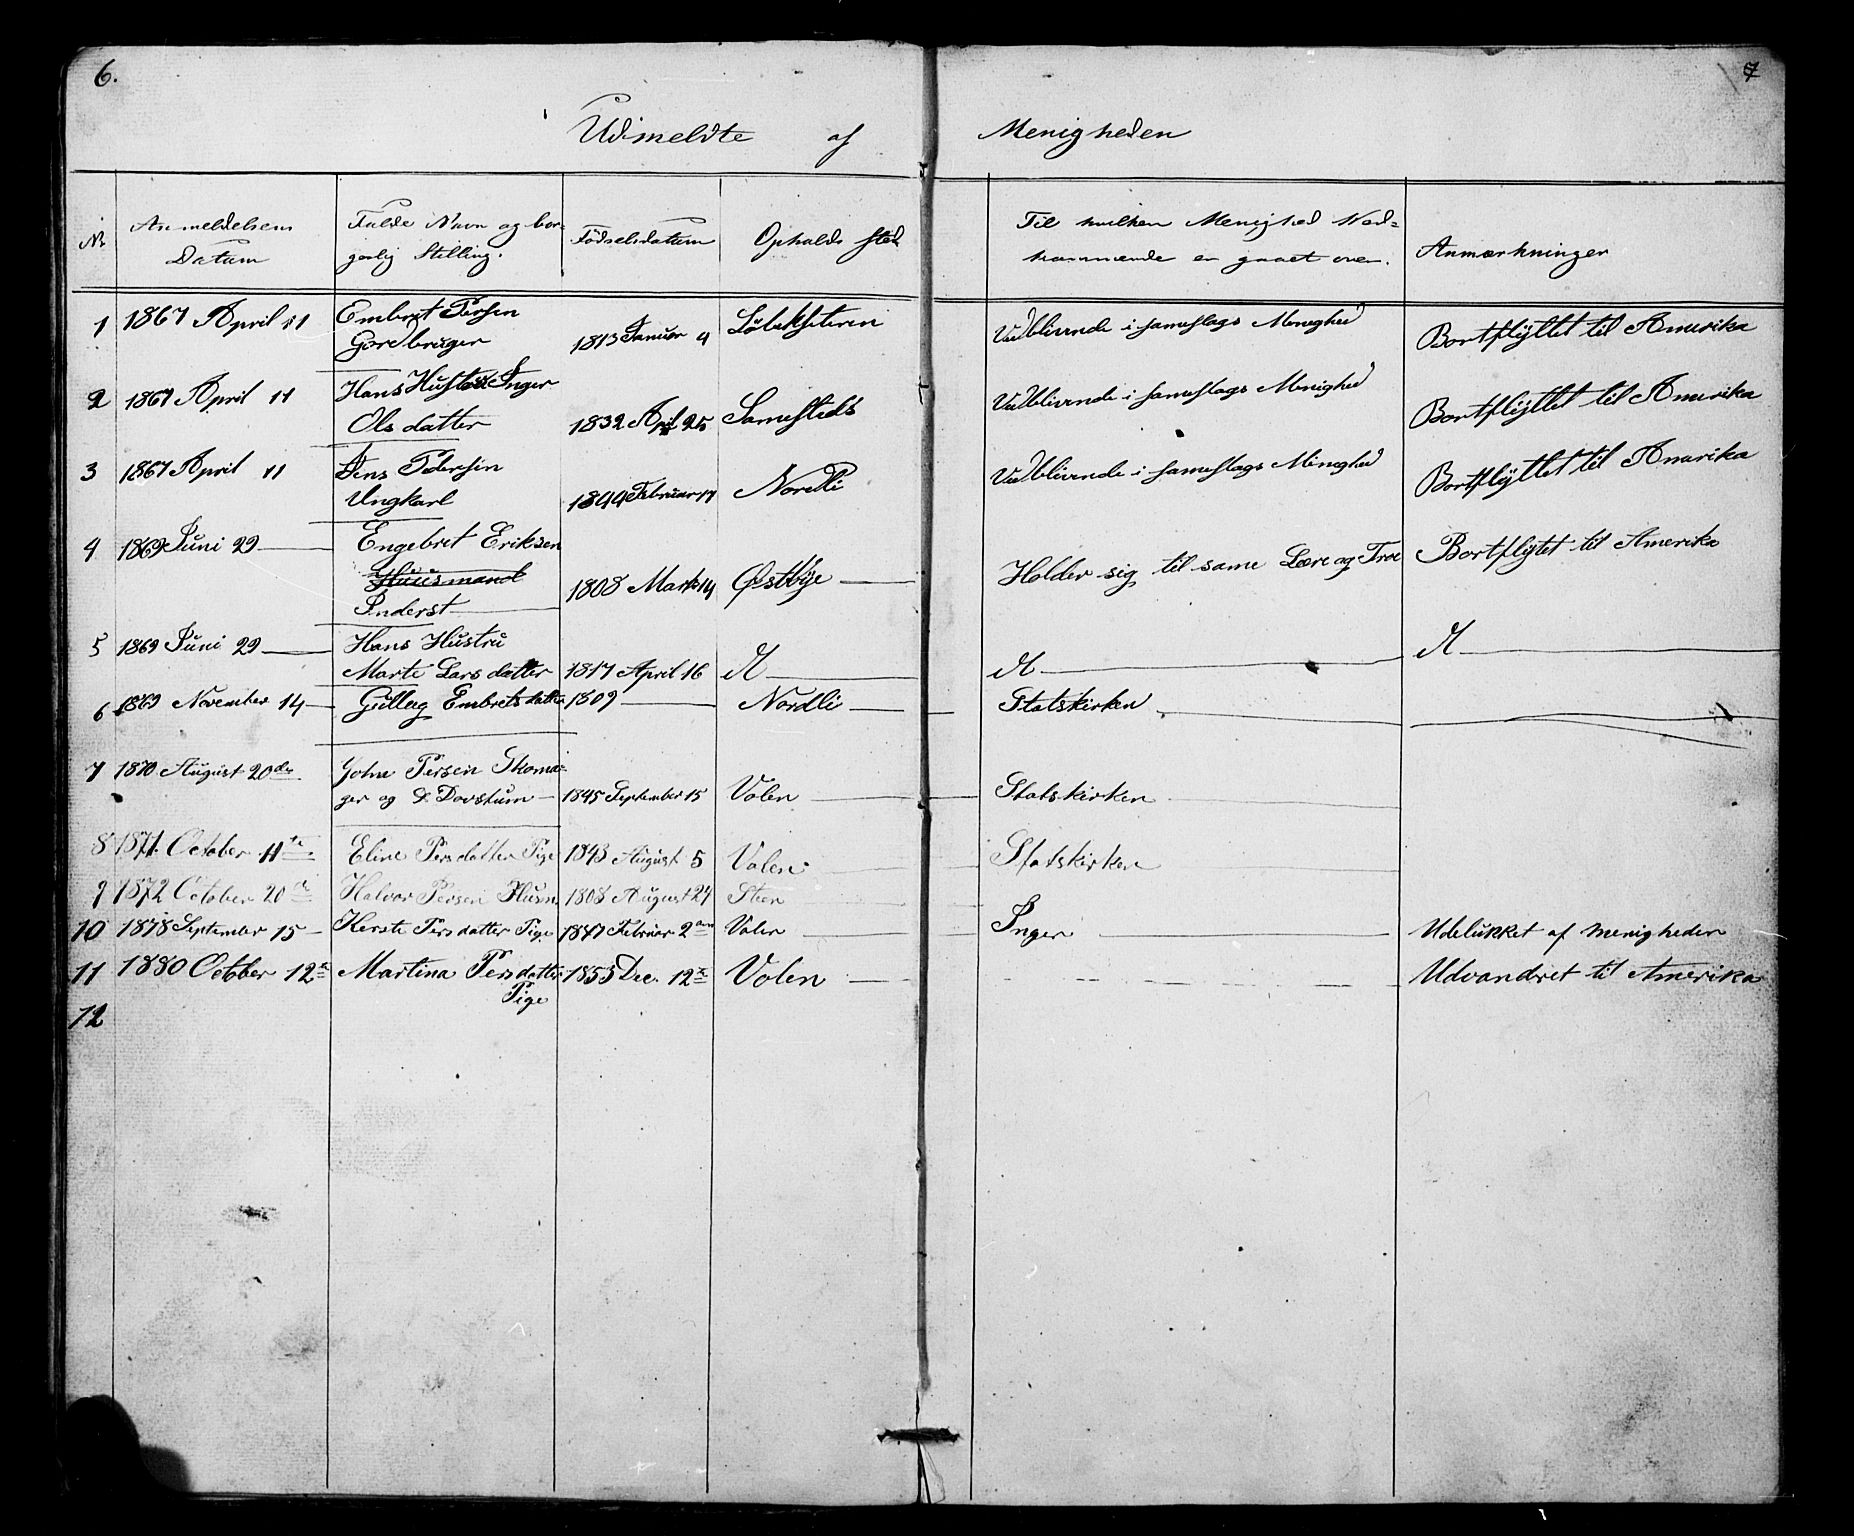 6. 7
Udmeldte af Menigheden
No Anmeldelsens Datum Fulde Navn og bor- gerlig Stilling. Fødselsdatum Opholds sted Til hvilken Menighed Ved- kommende er gaaet over. Anmærkninger
1 1867 April 11 Embret Persen Gardbruger 1813 Januar 4 Vedblivende i sameslags Menighed Bortflyttet til Amerika
2 1867 April 11 Hans Hustru Inger Ols datter 1832 April 25 Samesteds Vedblivende i sameslags Menighed Bortflyttet til Amerika
3 1867 April 11 Jens Pedersen Ungkarl 1844 Februar 17 Nordli Vedblivende i sameslags Menighed Bortflyttet til Amerika
4 1869 Juni 29 Engebret Eriksen Huusmand Inderst 1808 Marts 14 Østbye Holder sig til same Lære og Troe Bortflytet til Amerika
5 1869 Juni 29 Hans Hustru Marte Lars datter 1817 April 16
6 1869 November 14 Embrets datter 1809 Nordli Statskirken
7 1870 August 20de Johne Persen Skoma- ger og D. Dovstum 1845 September 15 Volen Statskirken
8 1871 October 11te Eline Persdatter Pige 1843 August 5 Volen Statskirken
9 1872 October 20de Halvor Persen Husm 1808 August 24 Steen
10 1878 September 15 Kerste Persdatter Pige 1847 Februar 2den Volen Inger Udelukket af menigheden
11 1880 October 12te Martina Persdatter Pige 1855 Dec. 12te Volen Udvandret til Amerika
12